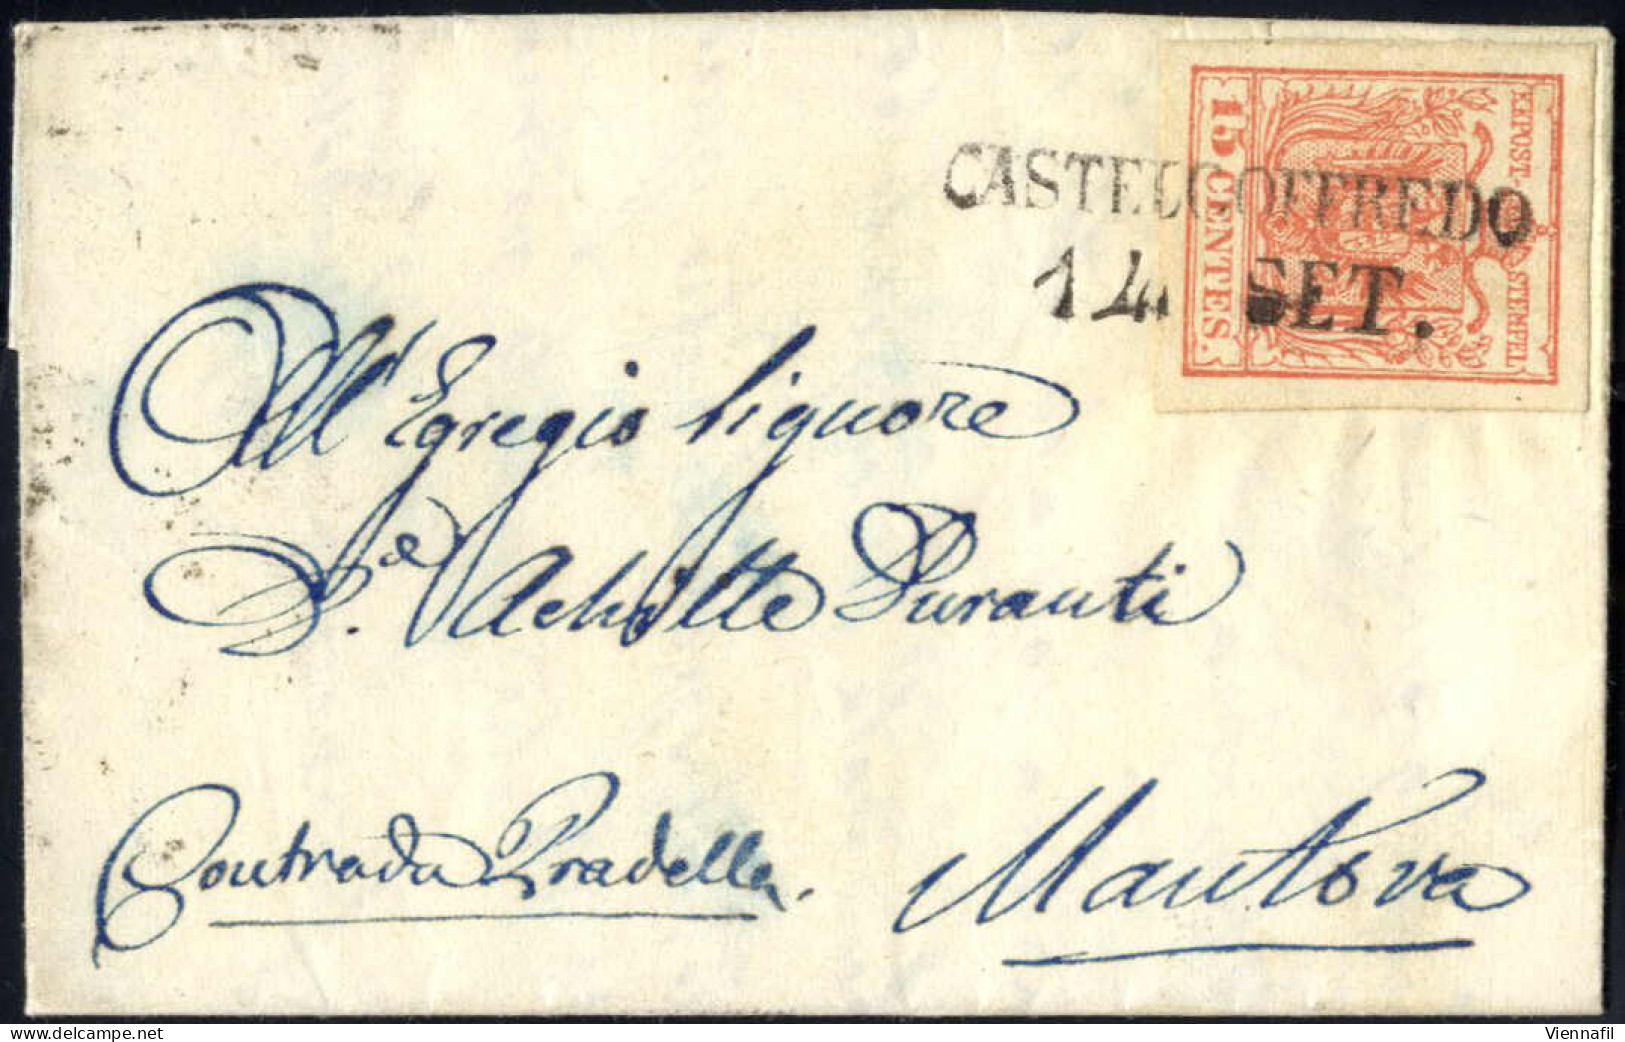 CASTELGOFFREDO
14 SET.
15 CENTES.
K.K. POST-STEMPEL
All' Egregio Signore
Achille Duranti
Contrada Pradella.
Mantova
delcampe.net
Viennafil